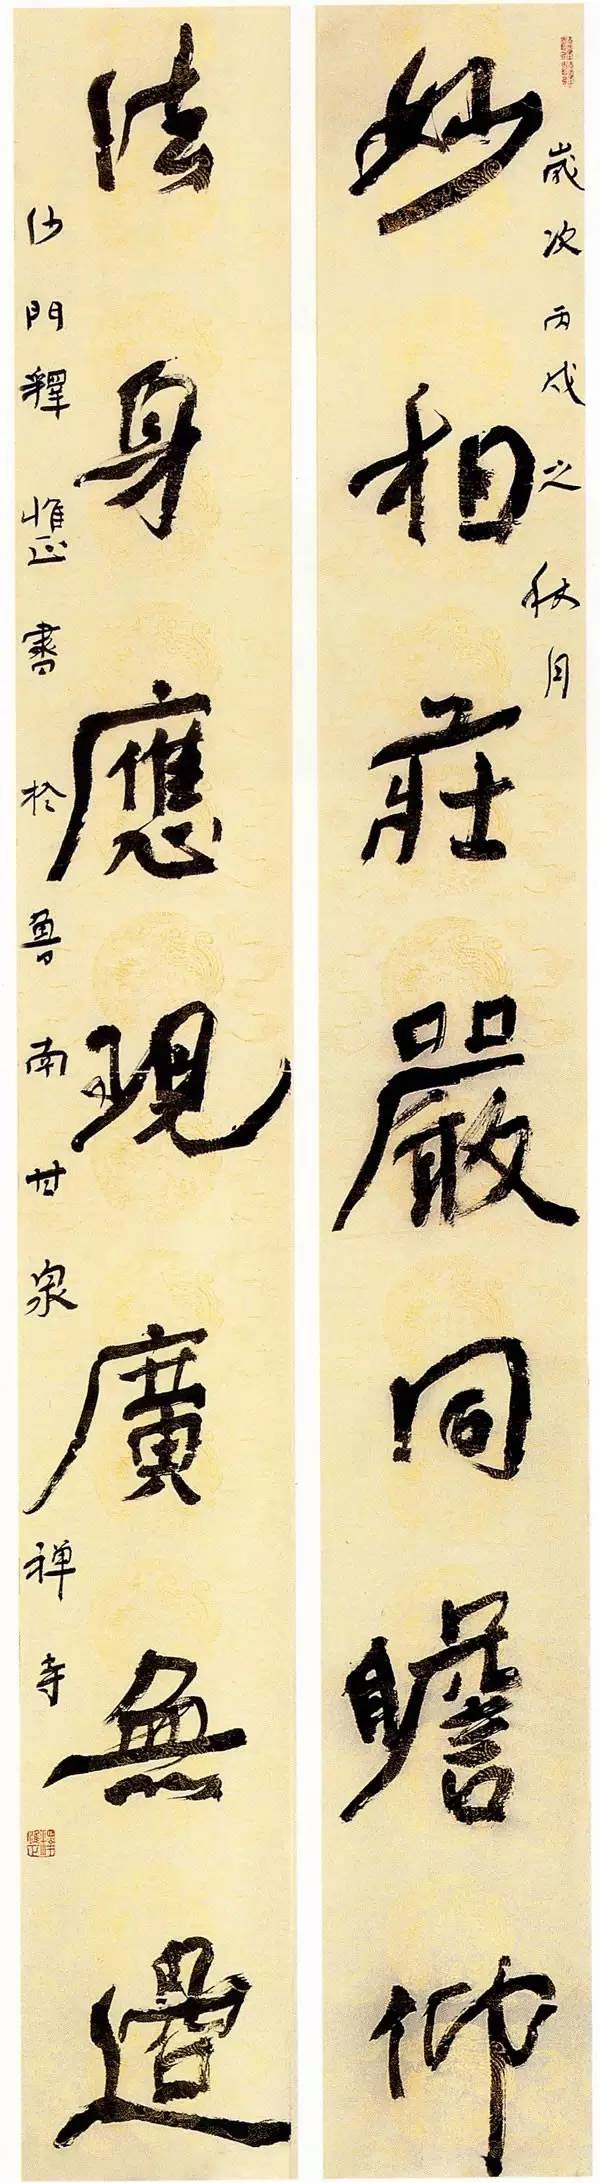 歲次丙戌之秋月
妙相莊嚴同瞻仰
法身應現廣無邊
沙門釋惟正書於魯南甘泉禅寺